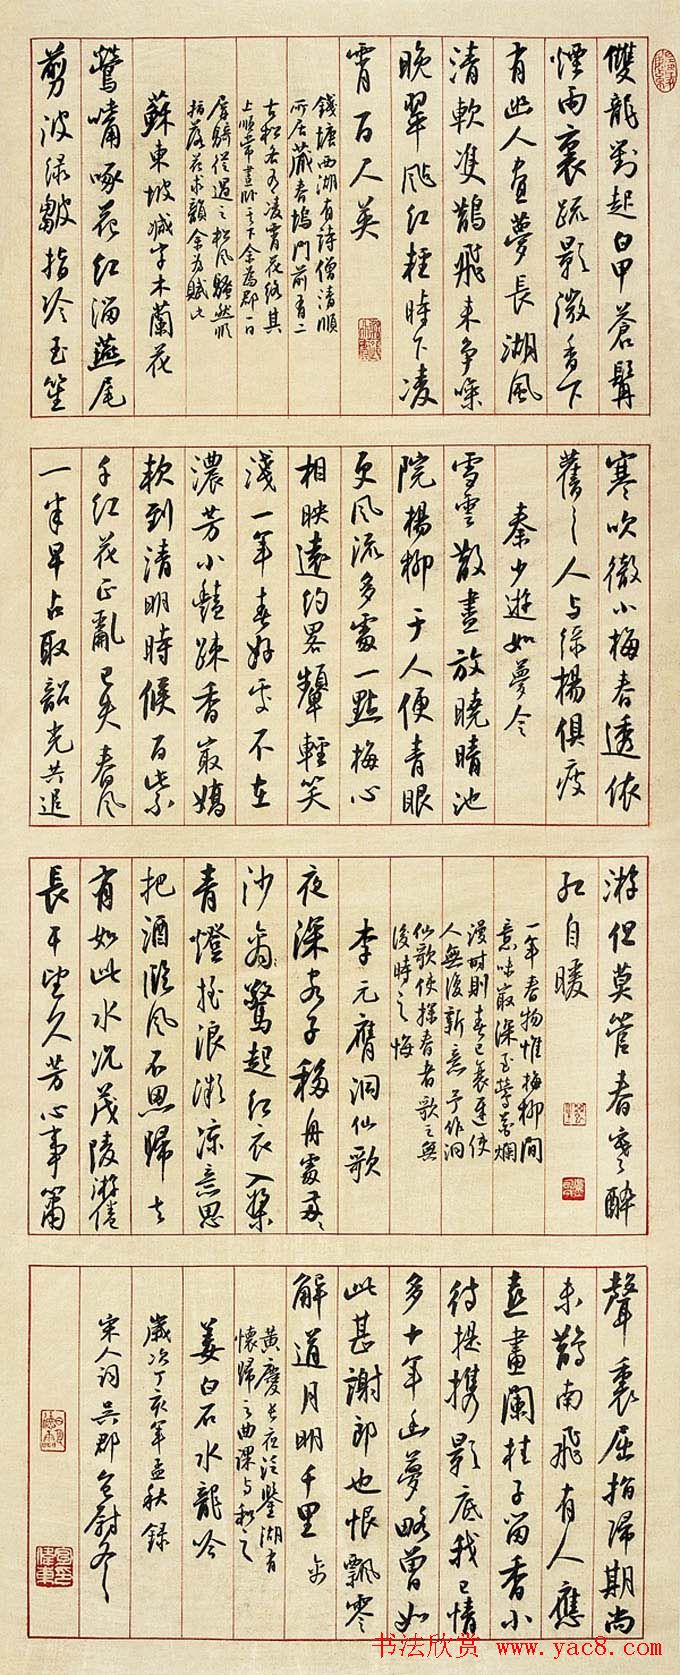 雙龍對起白甲蒼髯
煙雨裏疏影微香下
有幽人晝夢長湖風
清軟雙鵲飛來爭噪
晚翠颭紅輕時下凌
霄百尺英
錢塘西湖有詩僧清順
所居藏春塢門前有二
古松各有凌霄花絡其
上順常晝臥其下余為郡一日
屏騎從過之松風騷然順
指落花求韻余為賦此
蘇東坡減字木蘭花
鶯嘴啄花紅溜燕尾
剪波綠皺指冷玉笙
寒吹徹小梅春透依
舊々人與綠楊俱瘦
秦少遊如夢令
雪雲散盡放曉晴池
院楊柳于人便青眼
更風流多處一點梅心
相映遠約略顰輕笑
淺一年春好處不在
濃芳小艷疎香最嬌
軟到清明時候百紫
千紅花正亂已失春風
一半早占取韶光共追
游但莫管春寒醉
紅自暖
一年春物惟梅柳間
意味最深至鶯花爛
漫時則春已衰遲使
人無復新意予作洞
仙歌使探春者歌之無
後時之悔
李元膺洞仙歌
夜深客子移舟處兩々
沙禽驚起紅衣入槳
青燈搖浪微涼意思
把酒臨風不思歸去
有如此水況茂陵游倦
長干望久芳心事簫
聲裏屈指歸期尚
未鵲南飛有人應
喜畫闌桂子留香小
待提攜影底我已情
多十年幽夢略曾如
此甚謝郎也恨飄零
解道月明千里
黃慶長夜泛鑒湖有
懷歸之曲課予和之
姜白石水龍吟
歲次丁亥年孟秋錄
宋人詞吳郡
书法欣赏 www.yac8.com